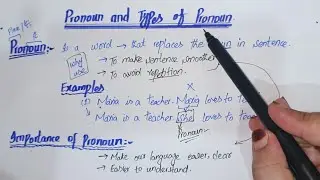 Pronoun and Types of Pronoun
Pronoun:-
Is a word → that replaces the noun in sentence.
why use
→ To make sentence smoother
→ To avoid repetition.
Examples
(1) Maria is a teacher. Maria loves to
Maria is a teacher She loves to
Pronoun
Importance of Pronoun:-
→ Make our language easier, clear
→ Easier to understand.